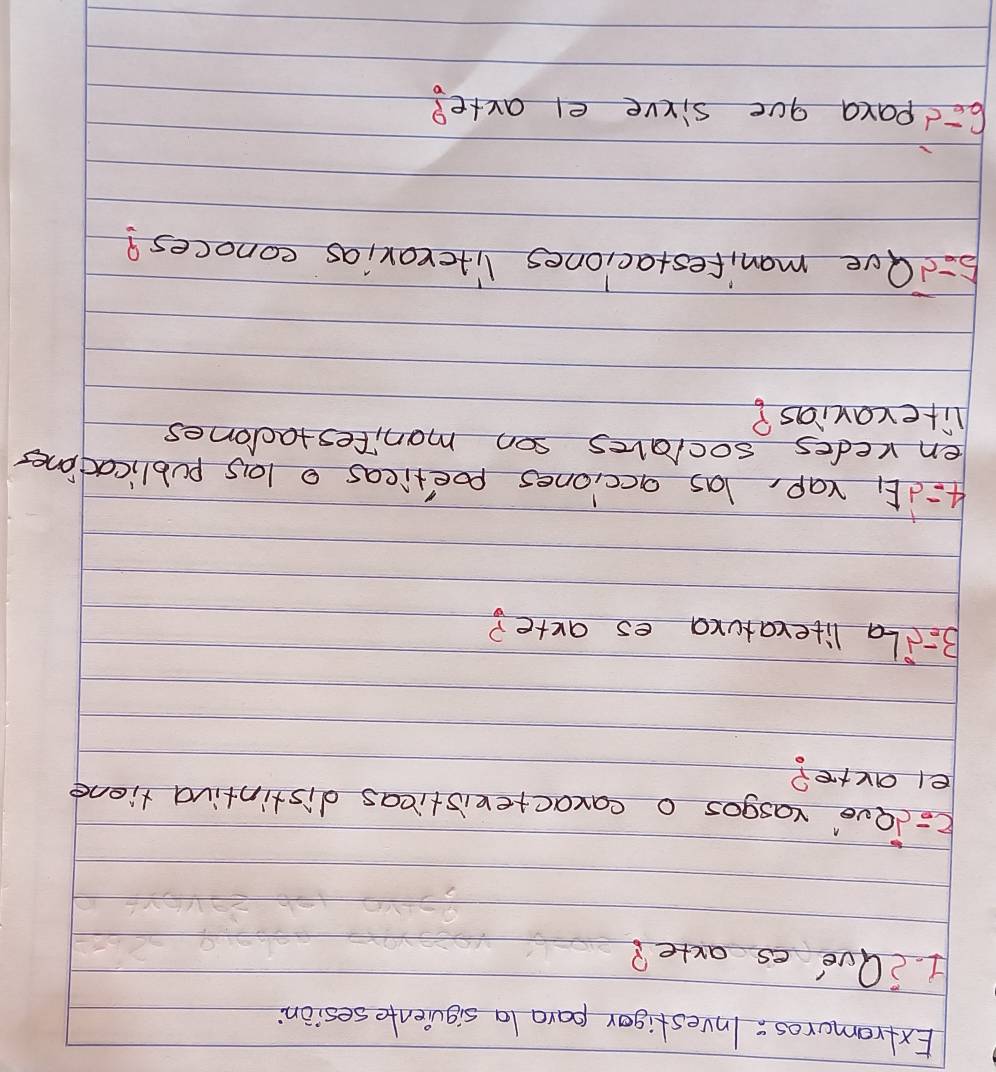 Extramuros: Investigar para la siguiente sesión.
1.- ¿Qué es arte?
2.- ¿Qué rasgos o características distintiva tiene
el arte?
3.- ¿La literatura es arte?
4.- ¿El rap, las acciones poéticas o las publicaciones
en redes sociales son manifestaciones
literarias?
5.- ¿Que manifestaciones literarias conoces?
6.- ¿para que sirve el arte?